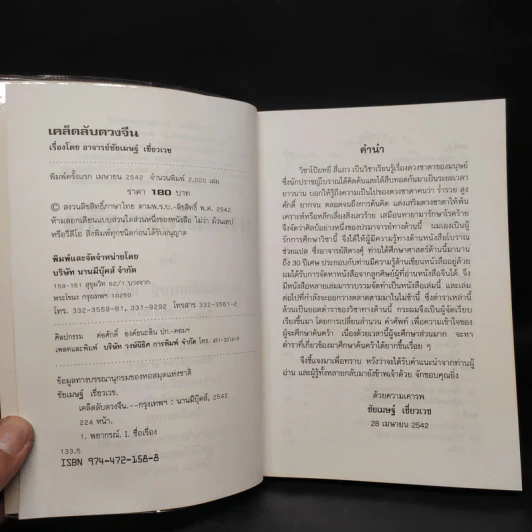 เคล็ดลับดวงจีน
เรื่องโดย อาจารย์ชัยเมษฐ์ เชี่ยวเวช
พิมพ์ครั้งแรก เมษายน 2542 จำนวนพิมพ์ 2,000 เล่ม
ราคา 180 บาท
© สงวนลิขสิทธิ์ภาษาไทย ตามพ.ร.บ.-ลิขสิทธิ์ พ.ศ. 2537
ห้ามลอกเลียนแบบส่วนใดส่วนหนึ่งของหนังสือ ไม่ว่า ม้วนเทป
หรือวีดีโอ สิ่งพิมพ์ทุกชนิดก่อนได้รับอนุญาต
พิมพ์และจัดจำหน่ายโดย
บริษัท นานมีบุ๊คส์ จำกัด
159-161 สุขุมวิท 62/1 บางจาก
พระโขนง กรุงเทพฯ 10250
โทร. 332-3559-61, 331-9292 โทรสาร 332-3561-2
ศิลปกรรม
เพลทและพิมพ์ บริษัท วงษ์นิธิศ การพิมพ์ จำกัด โทร.
ข้อมูลทางบรรณานุกรมของหอสมุดแห่งชาติ
ชัยเมษฐ์ เชี่ยวเวช.
เคล็ดลับดวงจีน.--กรุงเทพฯ : นานมีบุ๊คส์, 2542
224 หน้า.
1. พยากรณ์. I. ชื่อเรื่อง
133.5
ISBN 974-472-158-8
คำนำ
วิชาโป๊ยหยี่ สี่เถว เป็นวิชาเรียนรู้เรื่องดวงชาตาของมนุษย์
ซึ่งนักปราชญ์โบราณได้คิดค้นและได้สืบทอดกันมาเป็นระยะเวลา
ยาวนาน บอกให้รู้ถึงความเป็นไปของดวงชาตาคนว่า ร่ำรวย สูง
ศักดิ์ ยากจน ตลอดจนถึงการค้นคิด แต่งเสริมดวงชาตาให้พ้น
เคราะห์หรือหลีกเลี่ยงสิ่งเลวร้าย เสมือนหายามารักษาโรคร้าย
จึงจัดว่าศิลป์อย่างหนึ่งของปรมาจารย์ทางด้านนี้ ผมเองเป็นผู้
รักการศึกษาวิชานี้ จึงได้ให้ผู้มีความรู้ทางด้านหนังสือโบราณ
ช่วยแปล ซึ่งอาจารย์ ผู้ได้ศึกษาศาสตร์ด้านนี้มานาน
ถึง 30 ปีเศษ ประกอบกับท่านมีความรู้ด้านเขียนหนังสืออยู่ด้วย
ผมได้รับการจัดหาหนังสือจากลูกศิษย์ผู้ที่อ่านหนังสือจีนได้ จึง
มีหนังสือหลายเล่มมารวบรวมจัดทำเป็นหนังสือเล่มนี้ และเล่ม
ต่อไปที่กำลังจะออกวางตลาดตามมาในไม่ช้านี้ ซึ่งตำราเหล่านี้
ล้วนเป็นยอดตำราของวิชาทางด้านนี้ กระผมจึงเป็นผู้จัดเรียบ
เรียงขึ้นมา โดยการเปลี่ยนสำนวน คำศัพท์ เพื่อความเข้าใจของ
ผู้จะศึกษาค้นคว้า เนื่องด้วยเวลานี้ผู้จะศึกษาส่วนมาก จะหา
ตำราที่เกี่ยวข้องมาศึกษาค้นคว้าได้ยากขึ้นเรื่อย ๆ
จึงชี้แจงมาเพื่อทราบ หวังว่าจะได้รับคำแนะนำจากท่านผู้
อ่าน และผู้รู้ทั้งหลายกลับมายังข้าพเจ้าด้วย จักขอบคุณยิ่ง
ด้วยความเคารพ
ชัยเมษฐ์ เชี่ยวเวช
28 เมษายน 2542